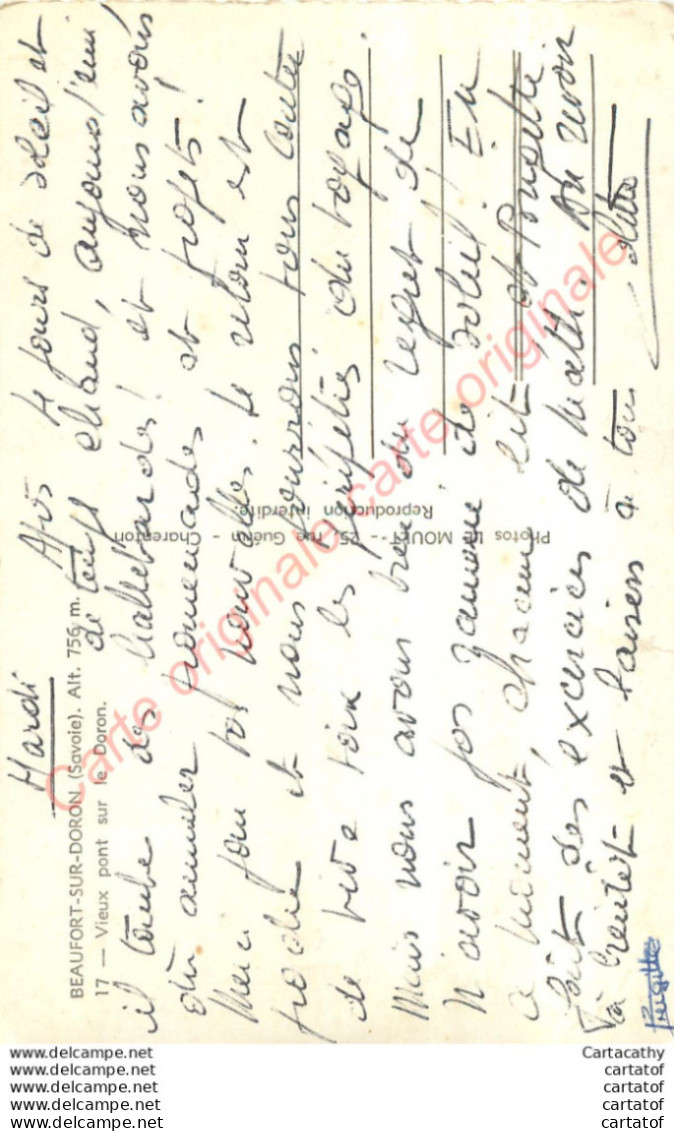 Mardi
BEAUFORT-SUR-DORON (Savoie). Alt. 756 m.
17 — Vieux pont sur le Doron.
Après 4 jours de soleil et
de temps chaud, aujourd'hui
il tombe des hallebardes! et nous avons
dû annuler promenades et projets!
Merci pour vos nouvelles. Le retour est
proche et nous pourrons tous conter
de vive voix les péripéties du voyage.
Mais nous avons bien du regret de
n'avoir pas amené de soleil! En
ce moment, chacun lit et Brigitte
fait des exercices de math. Au revoir
à bientôt et baisers à tous
Brigitte
Photos LE MOULT - 25, rue Guérin - Charenton
Reproduction interdite.
Carte originale Carte originale Carte originale
www.delcampe.net
www.delcampe.net
www.delcampe.net
www.delcampe.net
www.delcampe.net
Cartacathy
cartatof
cartatof
cartatof
cartatof